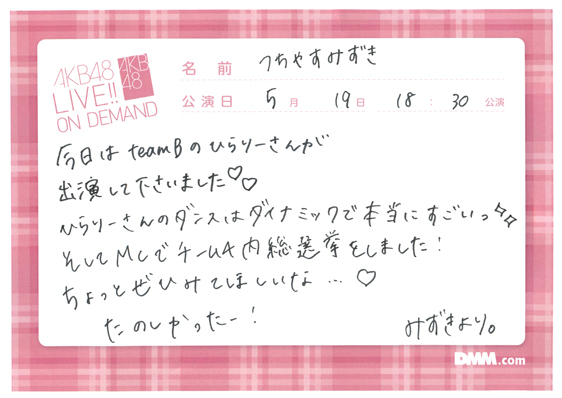 AKB48
LIVE!!
ON DEMAND
AKB
48
名前 つちやすみずき
公演日 5月 19日 18:30 公演
今日は teamBのひらりーさんが
出演して下さいました♡♡
ひらりーさんのダンスはダイナミックで本当にすごいっ
そしてMCでチームA内総選挙をしました!
ちょっとぜひみてほしいな…♡
たのしかったー!
みずきより。
DMM.com